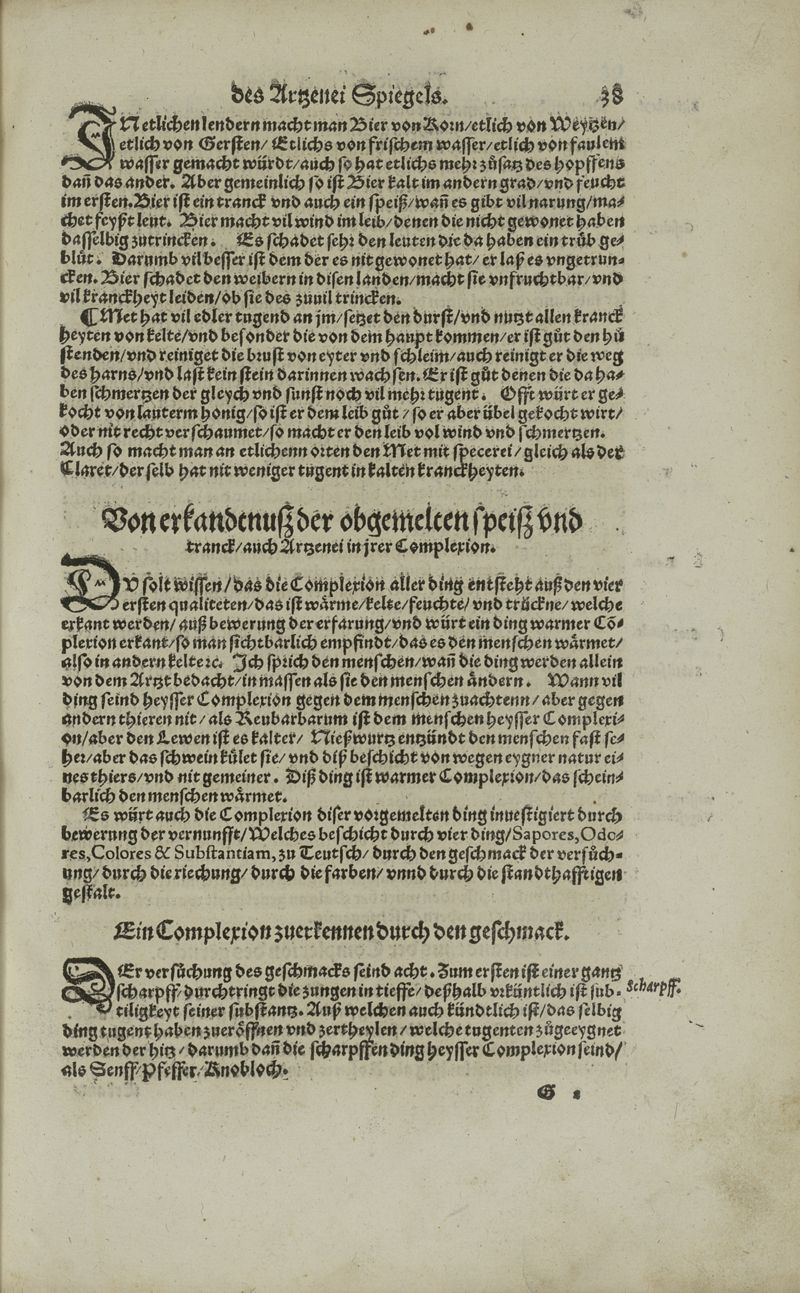 des Artzenei Spiegels. 38
IN etlichen lendern macht man Bier von Korn/etlich von Weytzen/
etlich von Gersten/ Etlichs von frischem wasser/etlich von faulem
wasser gemacht würdt/auch so hat etlichs mehr zůsatz des hopffens
dañ das ander. Aber gemeinlich so ist Bier kalt im andern grad/vnd feucht
im ersten. Bier ist ein tranck vnd auch ein speiß/wañ es gibt vil narung/ma⸗
chet feyßt leut. Bier macht vil wind im leib/denen die nicht gewonet haben
dasselbig zutrincken. Es schadet sehr den leuten die da haben ein trüb ge⸗
blüt. Darumb vil besser ist dem der es nit gewonet hat/er laß es vngetrun⸗
cken. Bier schadet den weibern in disen landen/macht sie vnfruchtbar/vnd
vil kranckheyt leiden/ob sie des zuuil trincken.
¶Met hat vil edler tugend an jm/setzet den durst/vnd nutzt allen kranck
heyten von kelte/vnd besonder die von dem haupt kommen/er ist gůt den hů
stenden/vnd reiniget die brust von eyter vnd schleim/auch reinigt er die weg
des harns/vnd last kein stein darinnen wachsen. Er ist gůt denen die da ha⸗
ben schmertzen der gleych vnd sunst noch vil mehr tugent. Offt würt er ge⸗
kocht von lauterm honig/so ist er dem leib gůt/so er aber übel gekocht wirt/
oder nit recht verschaumet/so macht er den leib vol wind vnd schmertzen.
Auch so macht man an etlichenn orten den Met mit specerei/gleich als der
Claret/der selb hat nit weniger tugent in kalten kranckheyten.
Von erkandtnuß der obgemelten speiß vnd
tranck/auch Artzenei in jrer Complexion.
DV solt wissen/das die Complexion aller ding entsteht auß den vier
ersten qualiteten/das ist wärme/kelte/feuchte/vnd trückne/welche
erkant werden/auß bewerung der erfarung/vnd würt ein ding warmer Cõ⸗
plexion erkant/so man sichtbarlich empfindt/das es den menschen wärmet/
also in andern keltere. Ich sprich den menschen/wañ die ding werden allein
von dem Artzt bedacht/in massen als sie den menschen ändern. Wann vil
ding seind heysser Complexion gegen dem menschen zuachtenn/aber gegen
andern thieren nit/als Reubarbarum ist dem menschen heysser Complexi⸗
on/aber den Lewen ist es kalter/ Nießwurtz entzündt den menschen fast se⸗
her/aber das schwein kület sie/vnd diß beschicht von wegen eygner natur ei⸗
nes thiers/vnd nit gemeiner. Diß ding ist warmer Complexion/das schein⸗
barlich den menschen wärmet.
Es würt auch die Complexion diser vorgemelten ding inuestigiert durch
bewerung der vernunfft/Welches beschicht durch vier ding/Sapores, Odo⸗
res, Colores & Substantiam, zu Teutsch/durch den geschmack der versůch⸗
ung/durch die riechung/durch die farben/vnnd durch die standthafftigen
gestalt.
Ein Complexion zuerkennen durch den geschmack.
DEr versůchung des geschmacks seind acht. Zum ersten ist einer gantz
scharpff/durchtringt die zungen in tieffe/deßhalb vrküntlich ist sub⸗
tiligkeyt seiner substantz. Auß welchen auch kündtlich ist/das selbig
ding tugent haben zueröffnen vnd zertheylen/welche tugenten zůgeeygnet
werden der hitz/darumb dañ die scharpffen ding heysser Complexion seind/
als Senff/Pfeffer/Knobloch.
Scharpff.
G